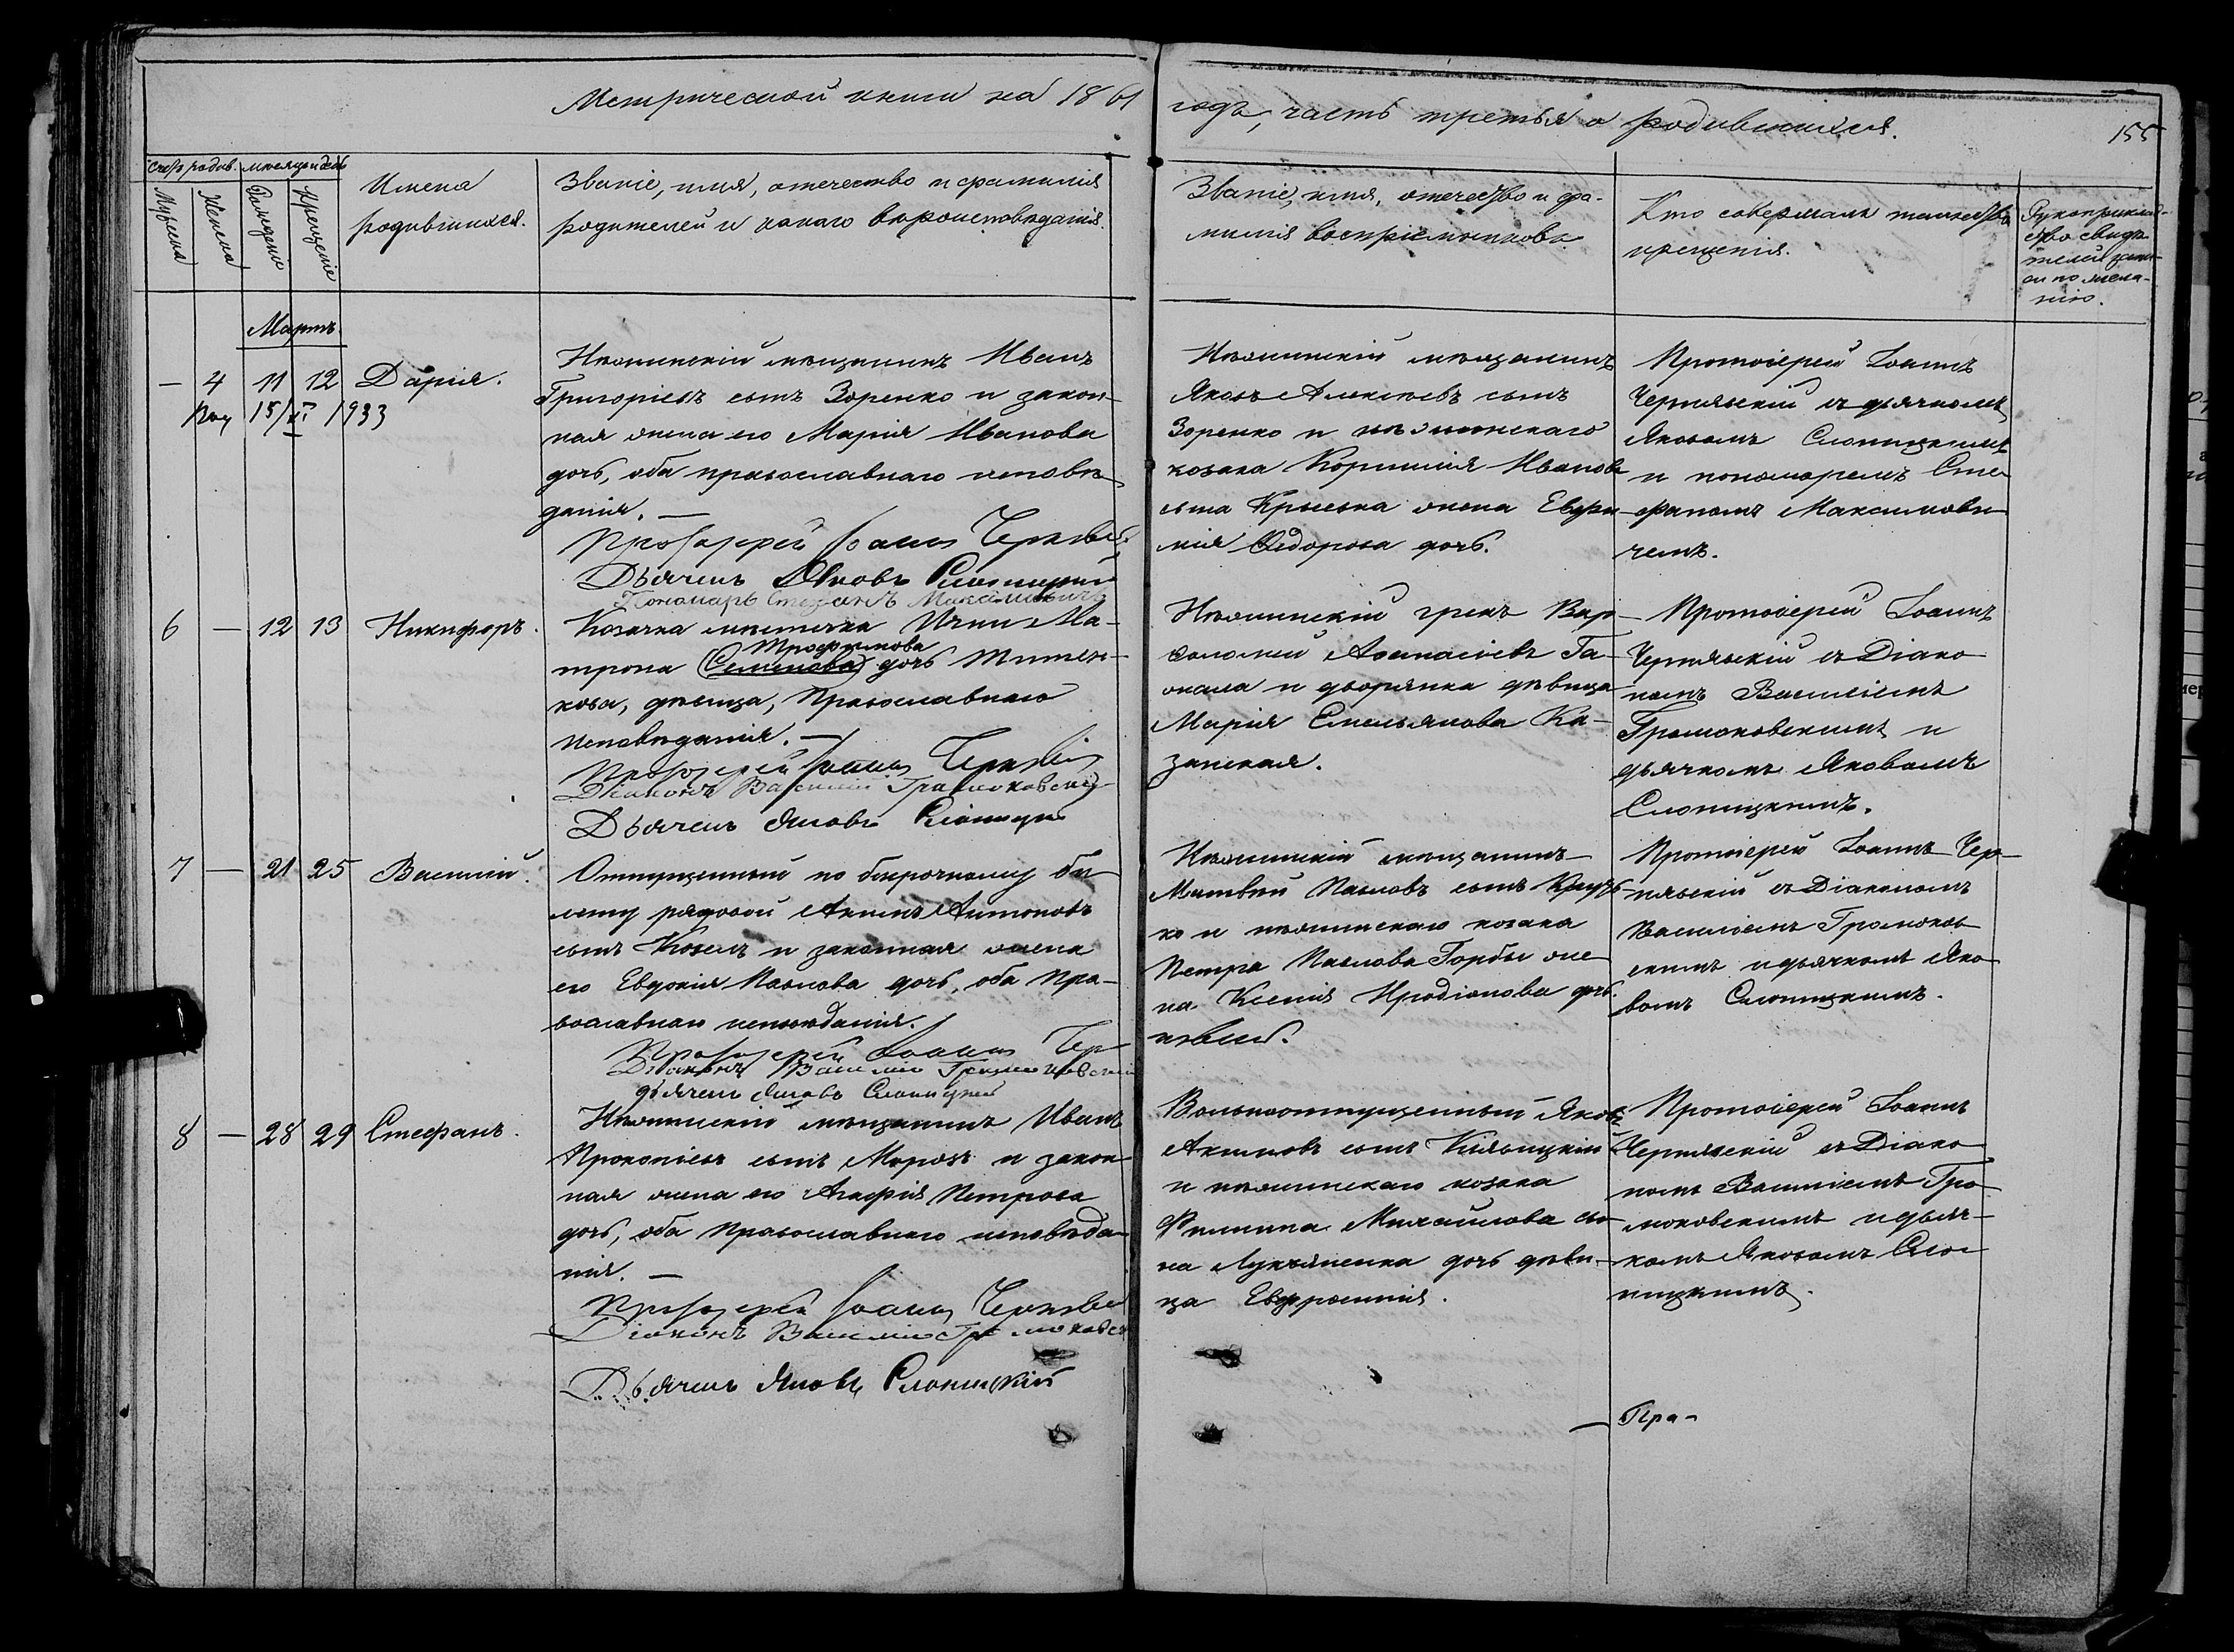 Метрической книги на 1861
годъ, часть третья о родившихся.
155
Счетъ родив.
мѣсяцъ и день
Мужеска
Женска
Рожденіе
Крещеніе
Имена
родившихся.
Званіе, имя, отечество и фамилія
родителей и какого вѣроисповѣданія.
Званіе, имя, отечество и фа-
милія воспріемниковъ.
Кто совершалъ таинство
крещенія.
Рукоприклад-
ство свидѣ-
телей запи-
си по жела-
нію.
Мартъ.
— 4 11 12 Дарія.
15/XI 1933
Нѣжинскій мѣщанинъ Иванъ
Григоріевъ сынъ Зоренко и закон-
ная жена его Марія Иванова
дочь, оба православнаго исповѣ-
данія. —
Протоіерей Іоаннъ
Дьячекъ Яковъ Слоницкій
Пономарь Стефанъ Максимовичъ
Нѣжинскій мѣщанинъ
Яковъ Алексѣевъ сынъ
Зоренко и нѣжинскаго
козака Корнилія Иванова
сына Крыська жена Евфи-
мія Ѳедорова дочь.
Протоіерей Іоаннъ
Чернявскій съ дьячкомъ
Яковомъ Слоницкимъ
и пономаремъ Сте-
фаномъ Максимови-
чемъ.
6 — 12 13 Никифоръ.
Козачка мѣстечка Ични Ма-
Трофимова
трона (Семенова) дочь
кова, дѣвица, Православнаго
исповѣданія. —
Протоіерей Іоаннъ
Діаконъ Василій Громоковскій
Дьячекъ Яковъ Слоницкій
Нѣжинскій грекъ Вар-
ѳоломей Аѳанасіевъ Га-
и дворянка дѣвица
Марія Емельянова Ка-
занская.
Протоіерей Іоаннъ
Чернявскій съ Діако-
номъ Василіемъ
Громоковскимъ и
дьячкомъ Яковомъ
Слоницкимъ.
7 — 21 25 Василій.
Отпущенный по безсрочному би-
лету рядовой Антоновъ
сынъ Козелъ и законная жена
его Евдокія Павлова дочь, оба Пра-
вославнаго исповѣданія.
Протоіерей Іоаннъ Чер
Діаконъ Василій Громоковскій
дьячекъ Яковъ Слоницкій
Нѣжинскій мѣщанинъ
Матвѣй Павловъ сынъ
ко и нѣжинскаго козака
Петра Павлова Горбы же-
на Ксенія Иродіонова дочь.
Протоіерей Іоаннъ Чер-
нявскій съ Діакономъ
Василіемъ Громоков-
скимъ и дьячкомъ Яко-
вомъ Слоницкимъ.
8 — 28 29 Стефанъ.
Нѣжинскій мѣщанинъ Иванъ
Прокопіевъ сынъ Морозъ и закон-
ная жена его Агафія Петрова
дочь, оба православнаго исповѣда-
нія. —
Протоіерей Іоаннъ
Діаконъ Василій Громоковск
Дьячекъ Яковъ Слоницкій
Вольноотпущенный Яковъ
Акимовъ сынъ
и нѣжинскаго козака
Филиппа Михайлова сы-
на Лукьяненка дочь дѣви-
ца Евфросинія.
Протоіерей Іоаннъ
Чернявскій съ Діако-
номъ Василіемъ Гро-
моковскимъ и дьяч-
комъ Яковомъ Сло-
ницкимъ.
— Пра-